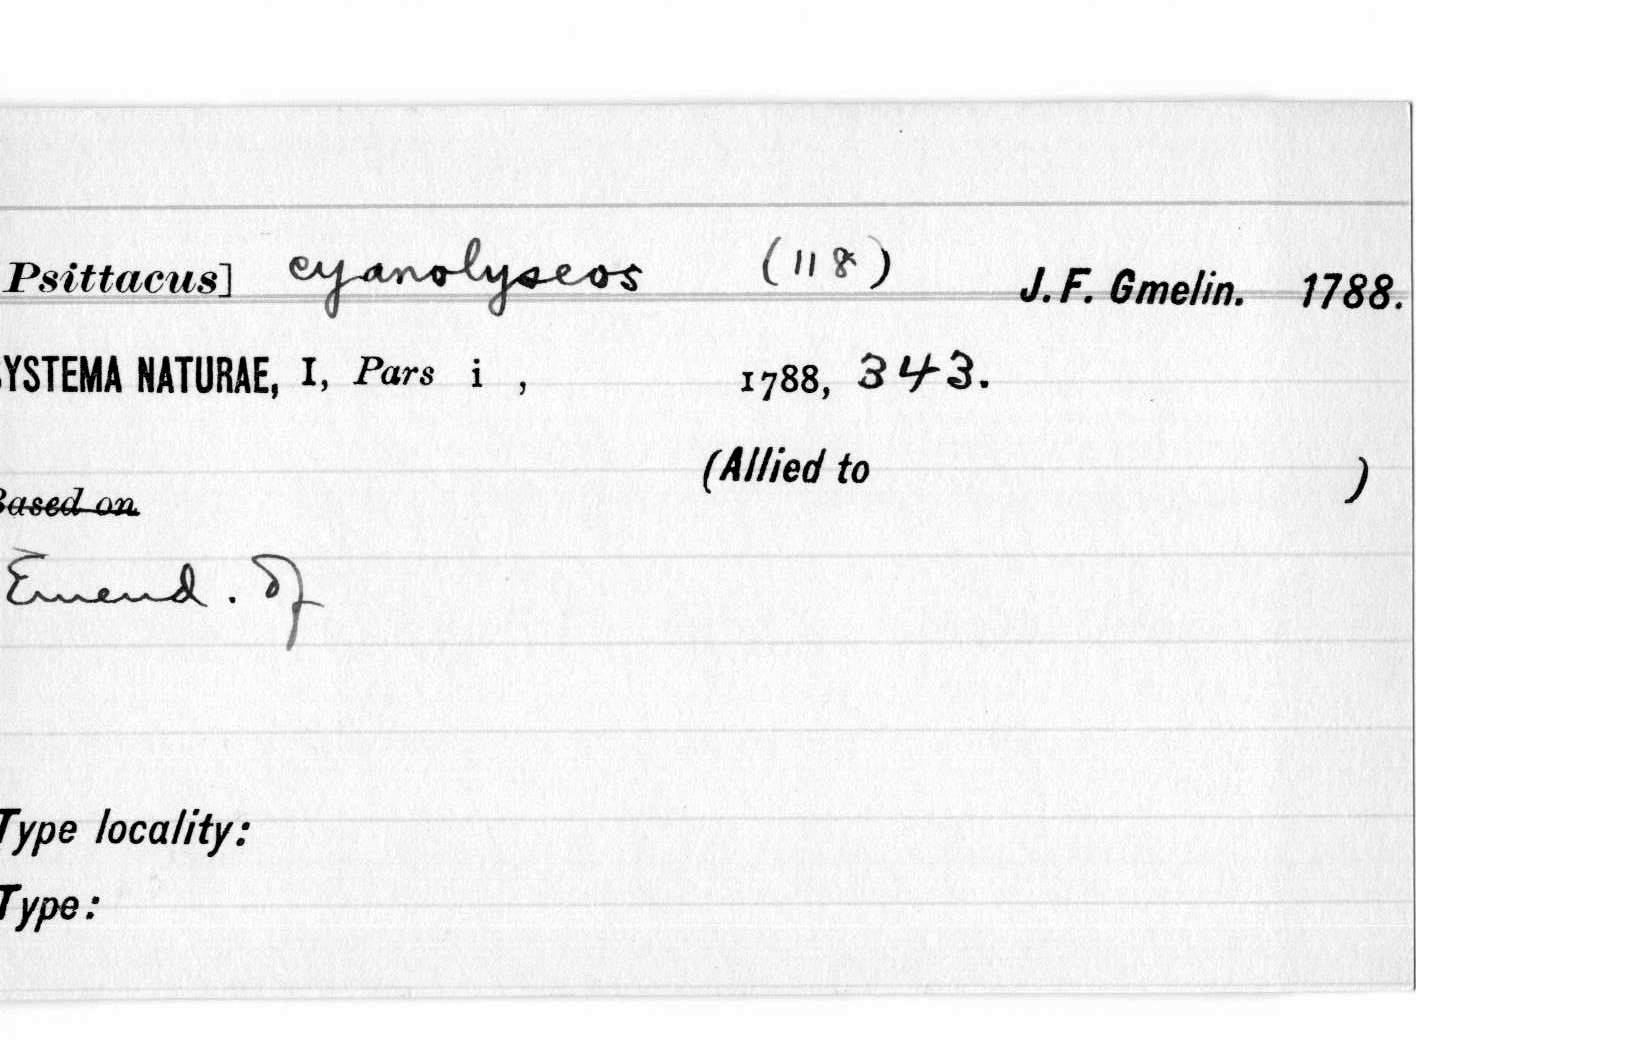 Psittacus] cyanolyseos (118) J. F. Gmelin. 1788.
SYSTEMA NATURAE, I, Pars i , 1788, 343.
(Allied to )
Based on
Emend. of
Type locality:
Type: